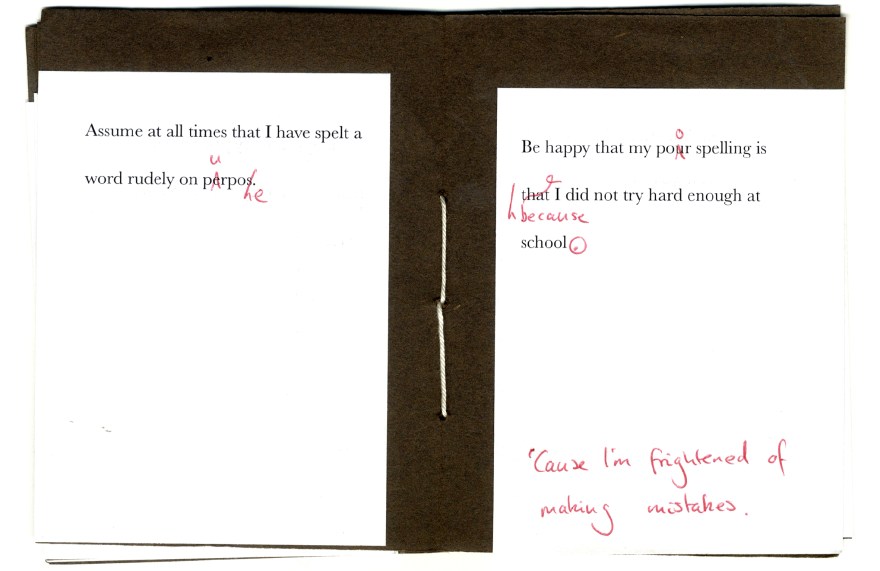 Assume at all times that I have spelt a
u
word rudely on perpos.
e
o
Be happy that my pour spelling is
that I did not try hard enough at
because
school.
'Cause I'm frightened of
making mistakes.